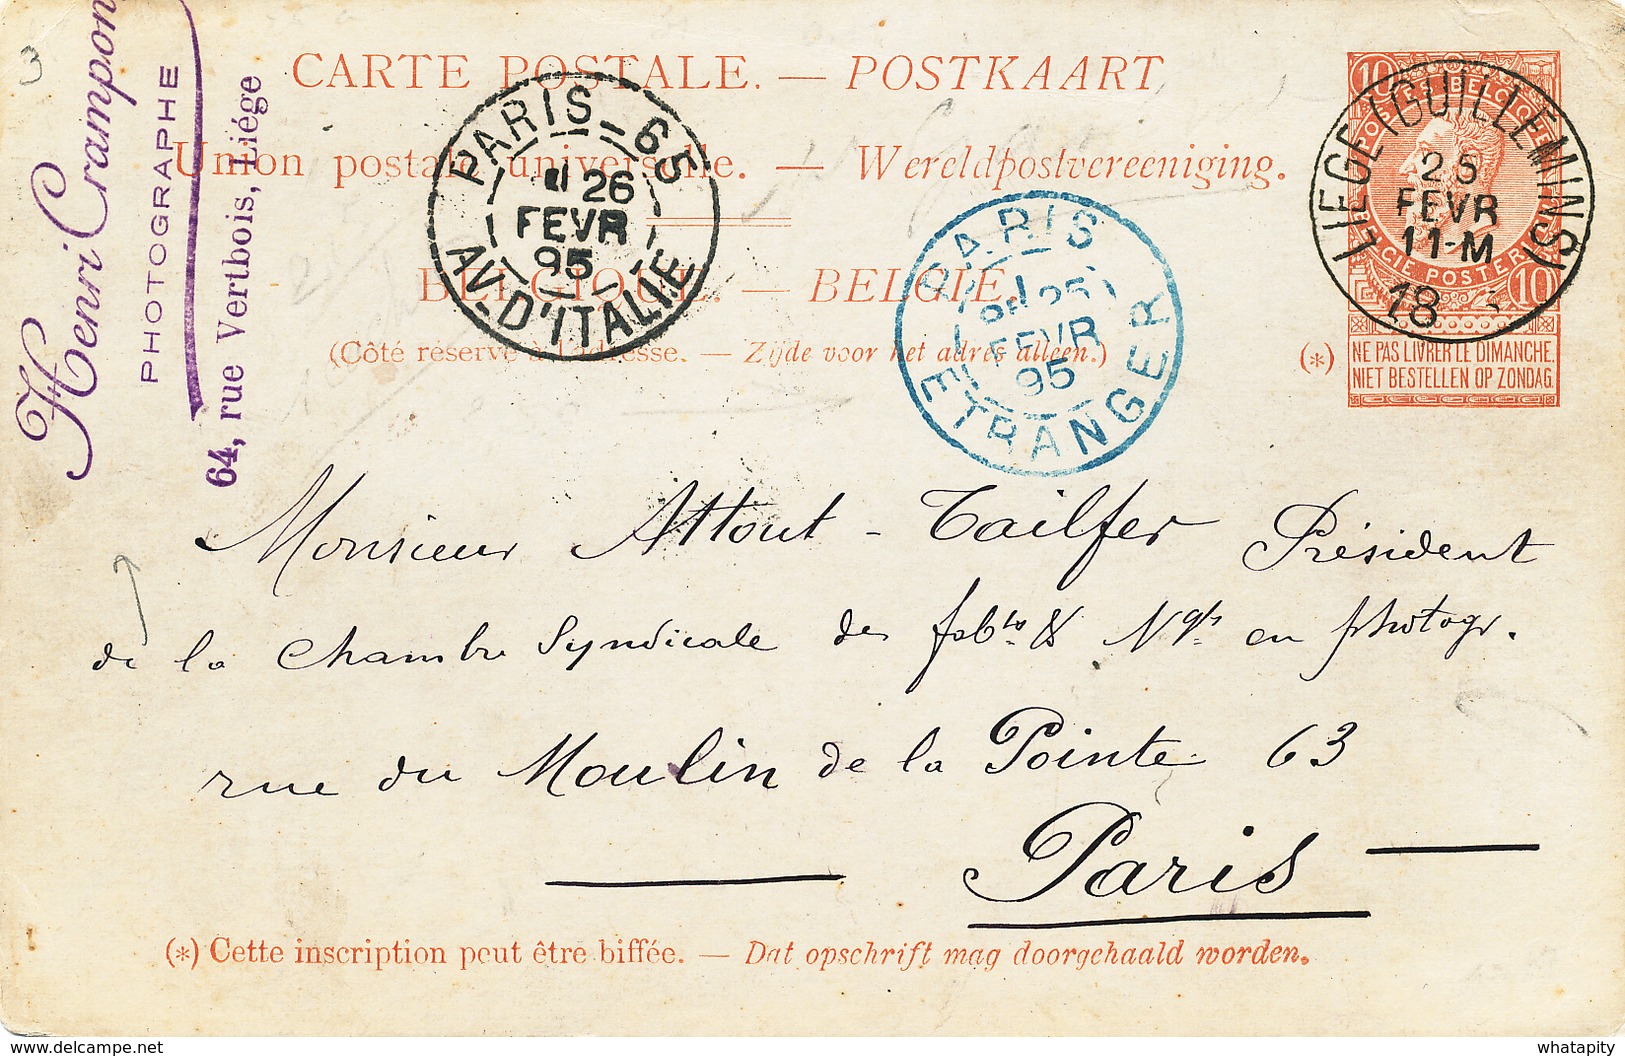 3
Henri Crampon
PHOTOGRAPHE
64, rue Vertbois, Liége
CARTE POSTALE. — POSTKAART
Union postale universelle. — Wereldpostvereeniging.
BELGIQUE. — BELGIE.
(Côté réservé à l'adresse. — Zijde voor het adres alleen.)
PARIS - 65
26
FEVR
95
AV. D'ITALIE
PARIS
25
FEVR
95
ETRANGER
LIEGE (GUILLEMINS)
25
FEVR
11-M
18 95
10 POSTES BELGIQUE
BELGIE POSTERIJ 10
(*) NE PAS LIVRER LE DIMANCHE.
NIET BESTELLEN OP ZONDAG.
Monsieur Attout - Tailfer Président
de la Chambre Syndicale des fabts & Ngts en photogr.
rue du Moulin de la Pointe 63
Paris
(*) Cette inscription peut être biffée. — Dat opschrift mag doorgehaald worden.
delcampe.net
whatapity